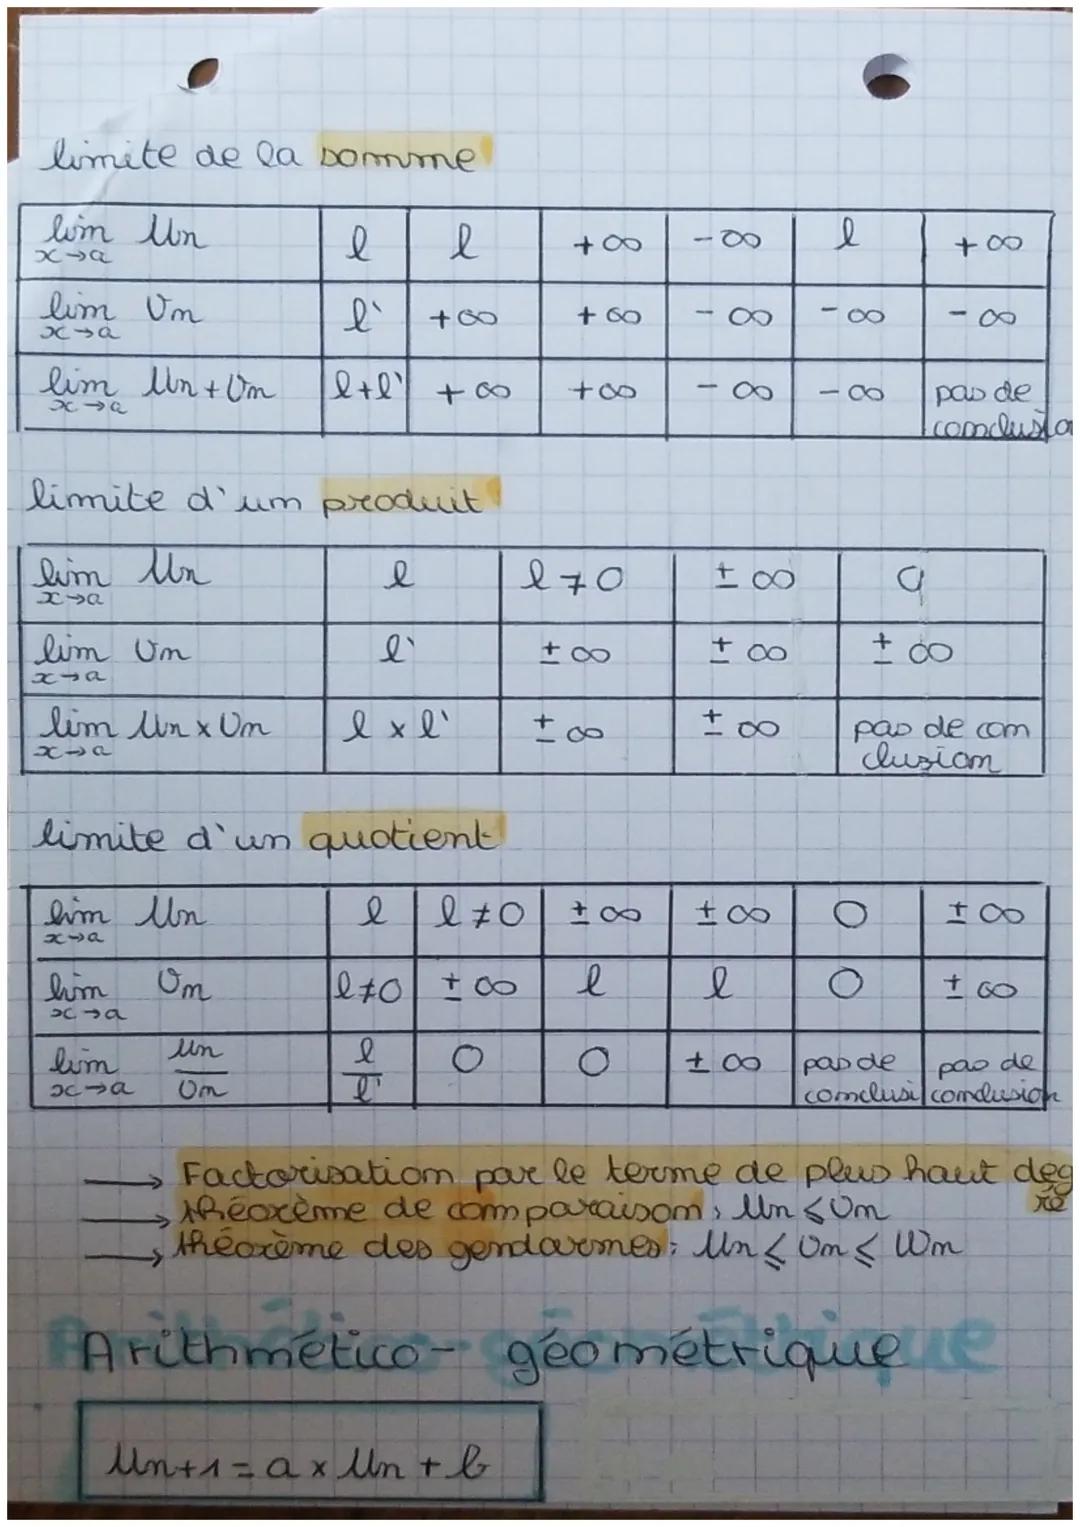 limite de la somme
lim Un l l +∞ -∞ l +∞
x→a
lim Vn l' +∞ +∞ -∞ -∞ -∞
x→a
lim Un+Vn l+l' +∞ +∞ -∞ -∞ pas de
x→a conclusio
limite d'un produit
lim Un l l≠0 ±∞ 0
x→a
lim Vn l' ±∞ ±∞ ±∞
x→a
lim Un x Vn l x l' ±∞ ±∞ pas de con
x→a clusion
limite d'un quotient
lim Un l l≠0 ±∞ ±∞ 0 ±∞
x→a
lim Vn l≠0 ±∞ l l 0 ±∞
x→a
lim Un/Vn l/l' 0 0 ±∞ pas de pas de
x→a conclusi conclusion
→ Factorisation par le terme de plus haut deg
ré
→ théorème de comparaison, Un ≤ Vn
→ théorème des gendarmes: Un ≤ Vn ≤ Wn
Arithmético-géométrique
Un+1 = a x Un + b